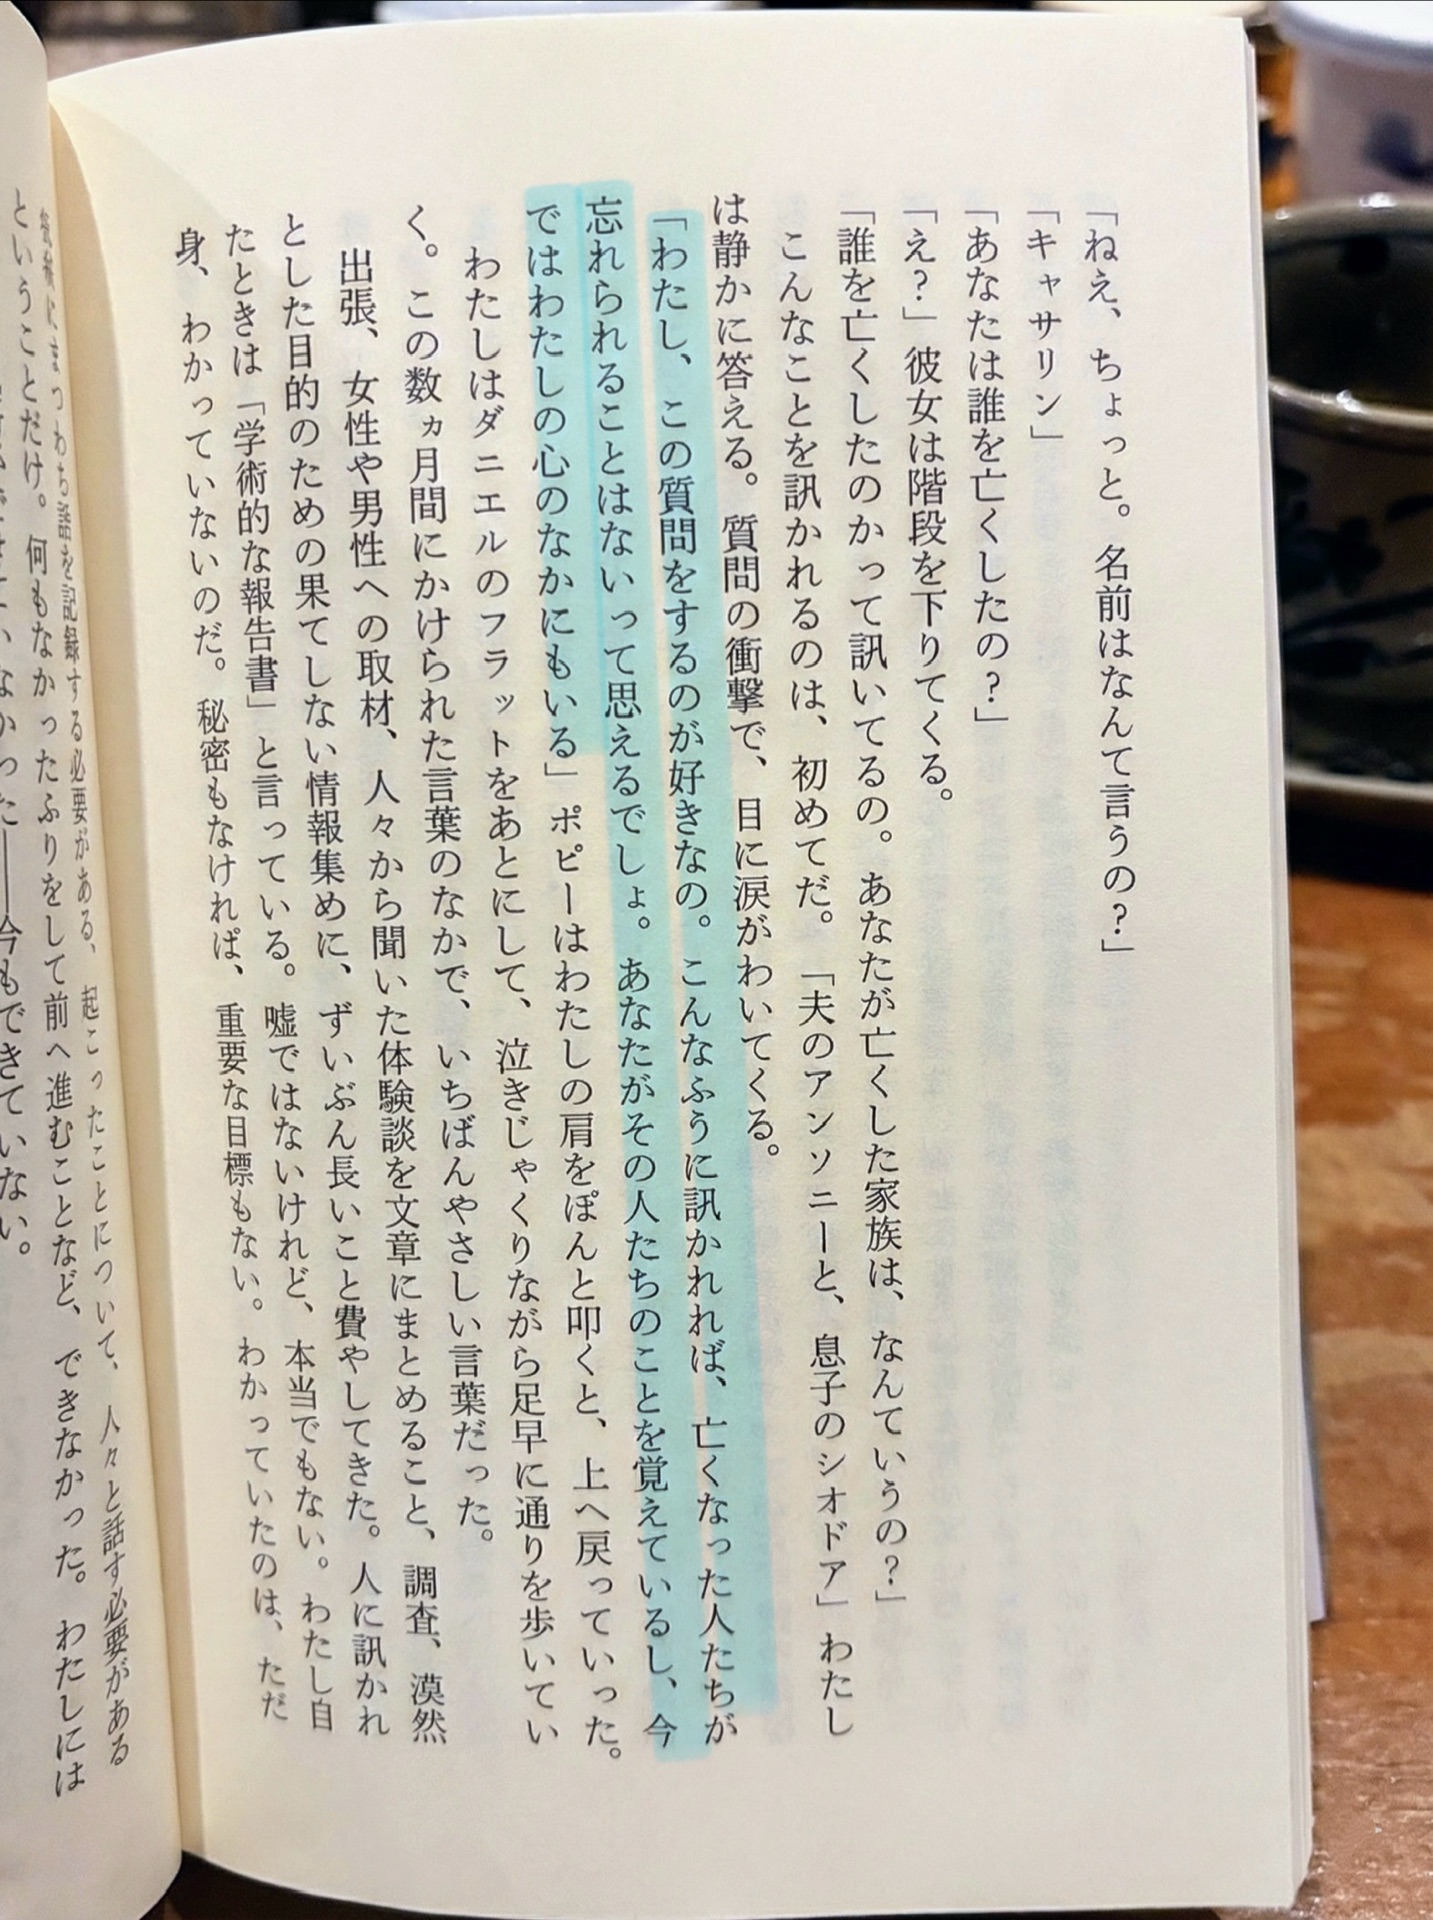 「ねえ、ちょっと。名前はなんて言うの？」
「キャサリン」
「あなたは誰を亡くしたの？」
「え？」彼女は階段を下りてくる。
「誰を亡くしたのかって訊いてるの。あなたが亡くした家族は、なんていうの？」
こんなことを訊かれるのは、初めてだ。「夫のアンソニーと、息子のシオドア」わたし
は静かに答える。質問の衝撃で、目に涙がわいてくる。
「わたし、この質問をするのが好きなの。こんなふうに訊かれれば、亡くなった人たちが
忘れられることはないって思えるでしょ。あなたがその人たちのことを覚えているし、今
ではわたしの心のなかにもいる」ポピーはわたしの肩をぽんと叩くと、上へ戻っていった。
わたしはダニエルのフラットをあとにして、泣きじゃくりながら足早に通りを歩いてい
く。この数ヵ月間にかけられた言葉のなかで、いちばんやさしい言葉だった。
出張、女性や男性への取材、人々から聞いた体験談を文章にまとめること、調査、漠然
とした目的のための果てしない情報集めに、ずいぶん長いこと費やしてきた。人に訊かれ
たときは「学術的な報告書」と言っている。嘘ではないけれど、本当でもない。わたし自
身、わかっていないのだ。秘密もなければ、重要な目標もない。わかっていたのは、ただ
にまつわる話を記録する必要がある、起こったことについて、人々と話す必要がある
ということだけ。何もなかったふりをして前へ進むことなど、できなかった。わたしには
なかった――今もできていない。